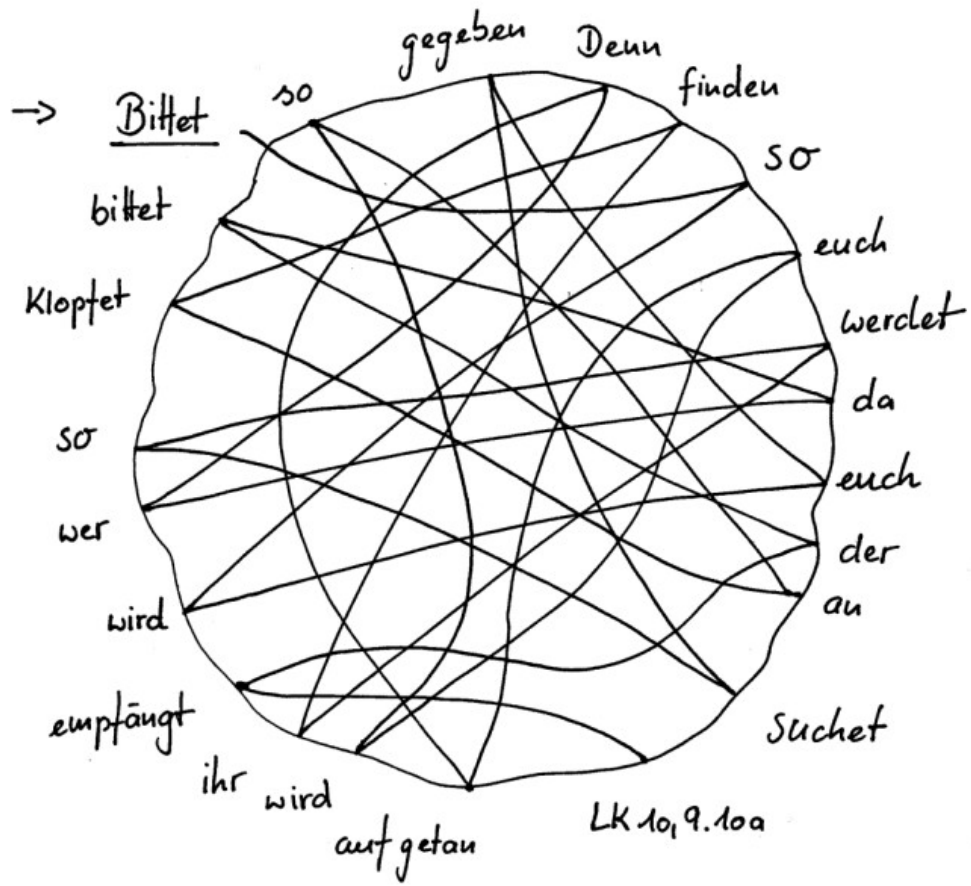 → Bittet
so
gegeben
Denn
finden
so
euch
werdet
da
euch
der
an
Suchet
LK 10,9.10a
aufgetan
wird
ihr
empfängt
wird
wer
so
Klopfet
bittet